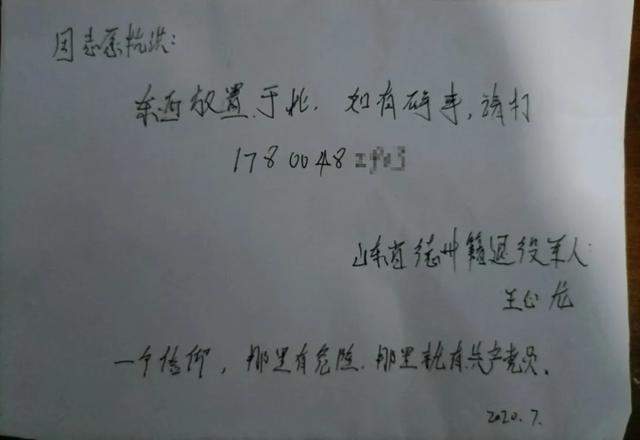 因志愿抗洪:
东西放置于此. 如有碍事, 请打
1780048
山东省德州籍退役军人
一个信仰, 那里有危险. 那里就有共产党员.
2020.7.